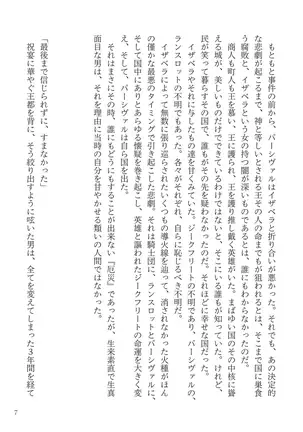 もともと事件の前から、パーシヴァルはイザベラと折り合いが悪かった。でも、あの決定的
な悲劇が起こるまで、神と等しいとされる王その人の命までもが狙われるとは、そこまで国に巣食
う腐敗と、イザベラという女の持つ闇が深いものであるとは、誰にもわからなかったのだ。
商人も町人も王を慕い、王に護られ、王を護り、王を推し戴く英雄がいた。まばゆい国の中核に聳
える城が、美しいものだけでできているわけではないと、そこにいる誰もが知っていた。けれど、
民が笑って暮らすその国で、誰もがその先を疑わなかったのだ。それほどに幸せな国だった。
イザベラに、そしてイザベラに与したもの達を甘くみていた。ジークフリートの不明であり、パーシヴァルの、
ランスロットの不明でもあった。各々がそれぞれ、自らに恥じるべき不明だ。
イザベラによって無数に張り巡らされたいくつもの導火線を辿って、消されなかった火種がほん
の僅かな最悪のタイミングで引き起こした悲劇。それは騎士団に、ランスロットとパーシヴァルに、
そして国中にありとあらゆる懐疑を巻き起こし、英雄と謳われたジークフリートの命運を大きく変
え、そして、パーシヴァルは自ら国を出た。
それはまさにその時、誰にもどうにもすることが出来ない『厄災』であったが、生来素直で生真
面目な男は、それを理由に当時の自分を甘やかせる類いの人間ではなかった。
「最後まで信じられずに、すまなかった」
祝宴に華やぐ王都を背に、そう絞り出すように呟いた男は、全てを変えてしまった3年間を経て
7